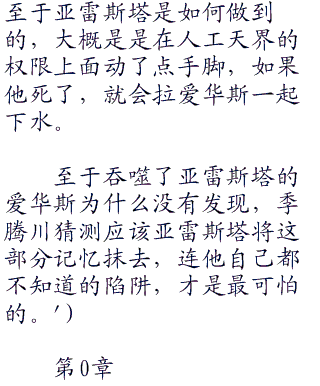 至于亚雷斯塔是如何做到
的，大概是是在人工天界的
权限上面动了点手脚，如果
他死了，就会拉爱华斯一起
下水。
至于吞噬了亚雷斯塔的
爱华斯为什么没有发现，季
腾川猜测应该亚雷斯塔将这
部分记忆抹去，连他自己都
不知道的陷阱，才是最可怕
的。′）
第0章